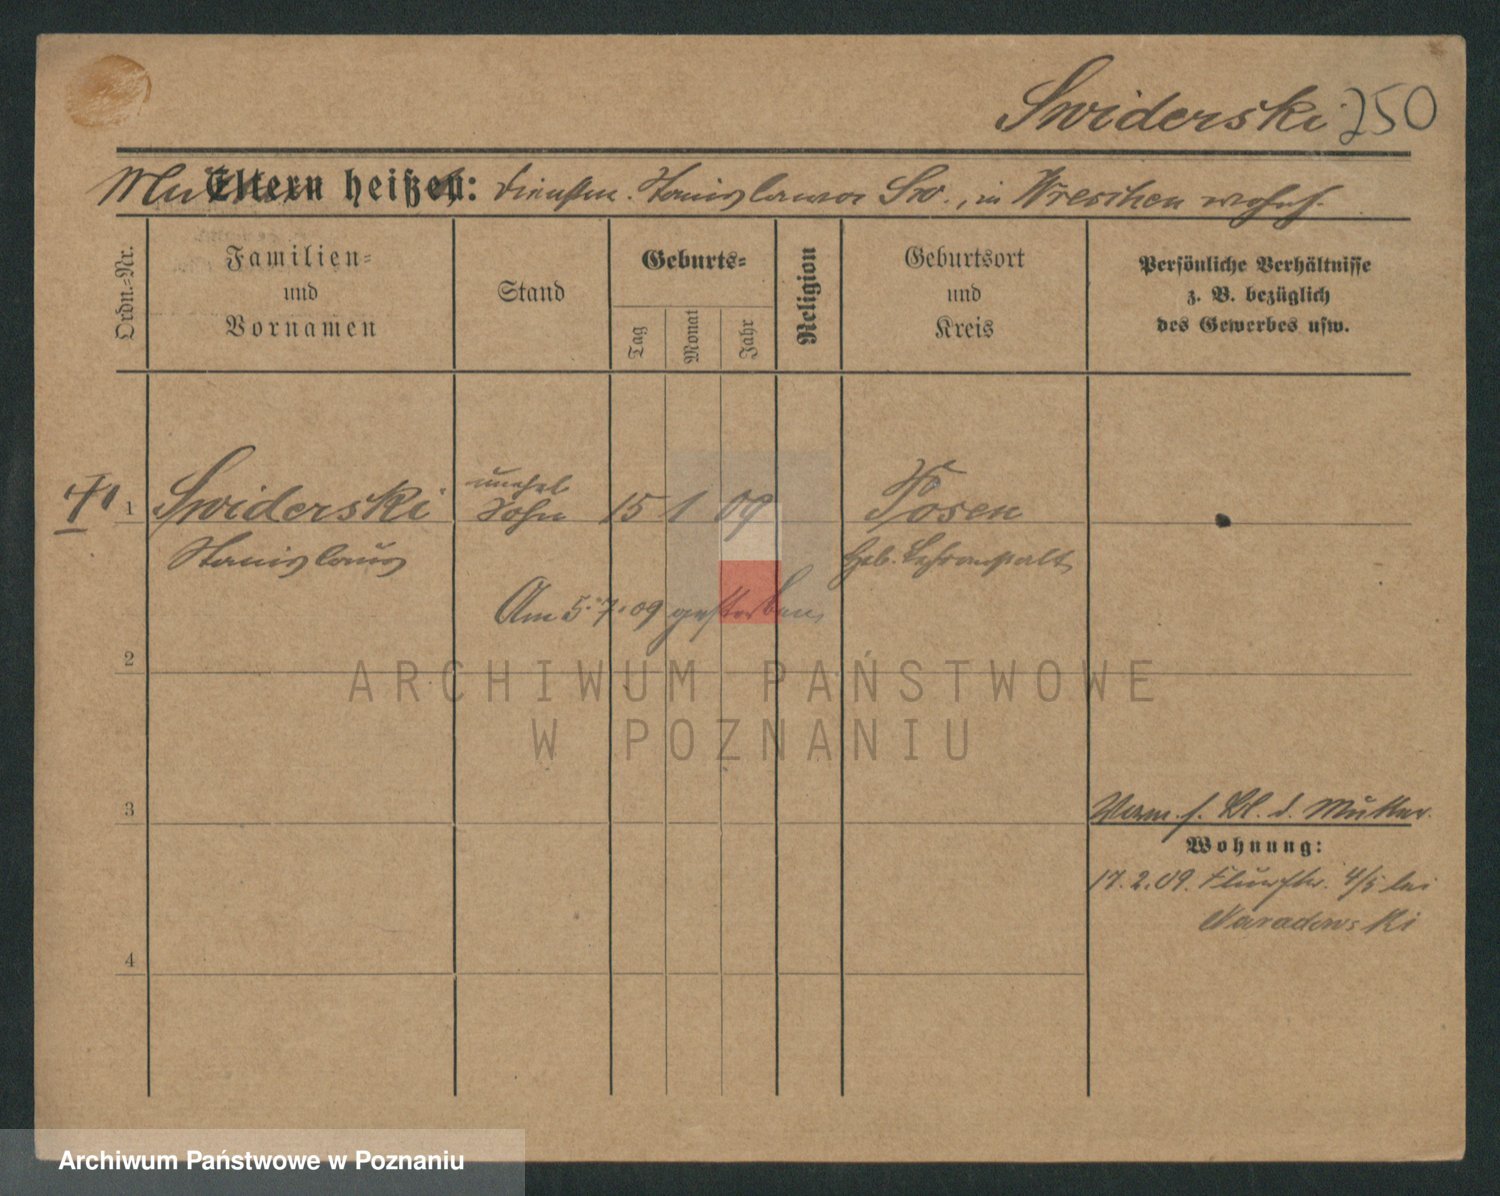 Swiderski 250
Mutter Eltern heißen: Dienstm. Stanislawa Sw., in Wreschen wohnh.
Ordn.-Nr.
Familien-
und
Vornamen
Stand
Geburts-
Tag
Monat
Jahr
Religion
Geburtsort
und
Kreis
Persönliche Verhältnisse
z. B. bezüglich
des Gewerbes usw.
1 Swiderski unehel Sohn 15 1 09 Posen
Stanislaus Heb. Lehranstalt
Am 5.7.09 gestorben
2
ARCHIWUM PAŃSTWOWE
W POZNANIU
3
Verm. s. Bl. d. Mutter.
Wohnung:
17.2.09. Flurstr. 4/5 bei
4
Archiwum Państwowe w Poznaniu